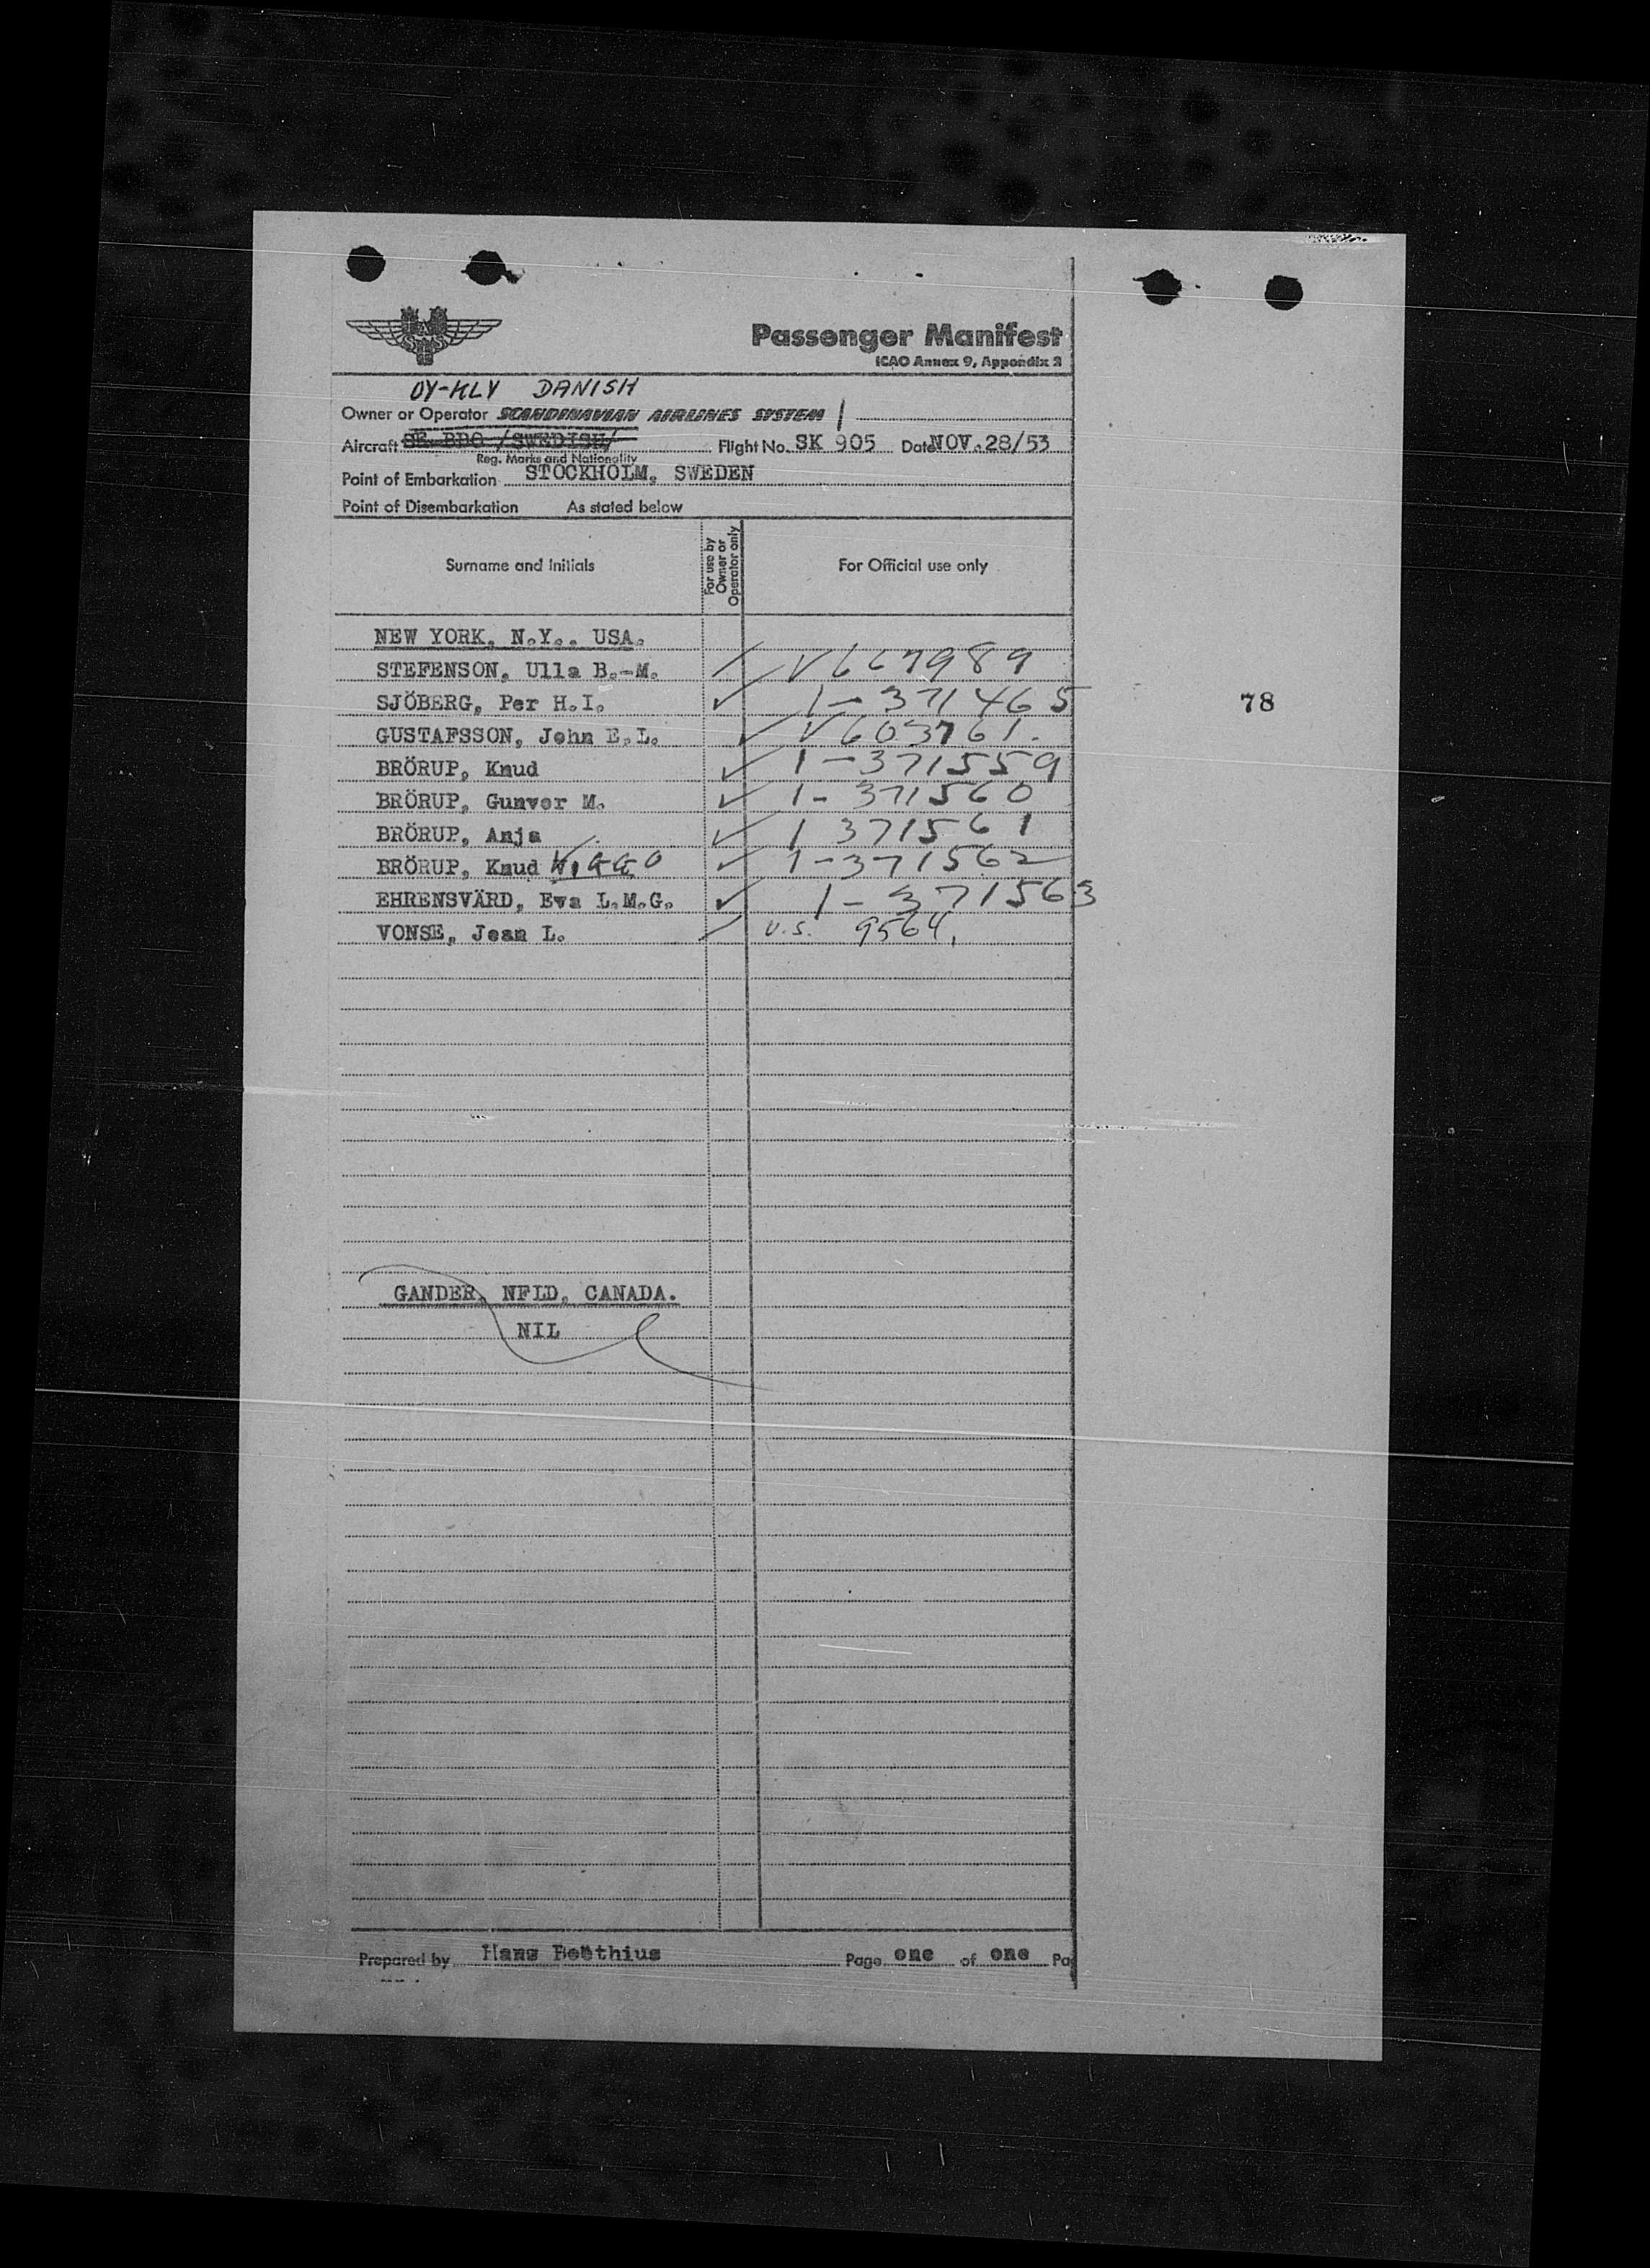 Passenger Manifest
ICAO Annex 9, Appendix 2
OY-KLY DANISH
Owner or Operator SCANDINAVIAN AIRLINES SYSTEM
Aircraft SE-BDO /SWEDISH/ Flight No. SK 905 Date NOV. 28/53
Reg. Marks and Nationality
Point of Embarkation STOCKHOLM, SWEDEN
Point of Disembarkation As stated below
Surname and Initials For use by Owner or Operator only For Official use only
NEW YORK, N.Y., USA.
STEFENSON, Ulla B.-M. V667989
SJÖBERG, Per H.I. 1-371465
78
GUSTAFSSON, John E.L. V603761.
BRÖRUP, Knud 1-371559
BRÖRUP, Gunver M. 1-371560
BRÖRUP, Anja 1 371561
BRÖRUP, Knud VIGGO 1-371562
EHRENSVÄRD, Eva L.M.G. 1-371563
VONSE, Jean L. U.S. 9564.
GANDER, NFLD, CANADA.
NIL
Prepared by Hans Boëthius Page one of one Pa